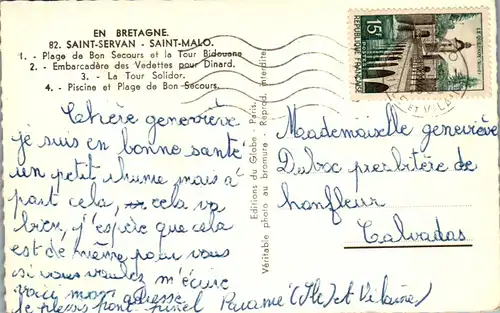 EN BRETAGNE.
82. SAINT-SERVAN - SAINT-MALO.
1. - Plage de Bon Secours et la Tour Bidouane
2. - Embarcadère des Vedettes pour Dinard.
3. - La Tour Solidor.
4. - Piscine et Plage de Bon-Secours.
chière geneviève
je suis en bonne santé
un petit rhume mais a'
part cela, cela va
bien, j'espère que cela
est de même pour vous
si vous voulez m'écire
voici mon adresse
le plessis pont pinel Paramé (Ile) et Vilaine)
Editions du Globe - Paris.
Véritable photo au bromure - Reprod. interdite
15F
REPUBLIQUE FRANCAISE
LE QUESNOY
Mademoiselle geneviève
Duboc presbitère de
honfleur
Calvadas